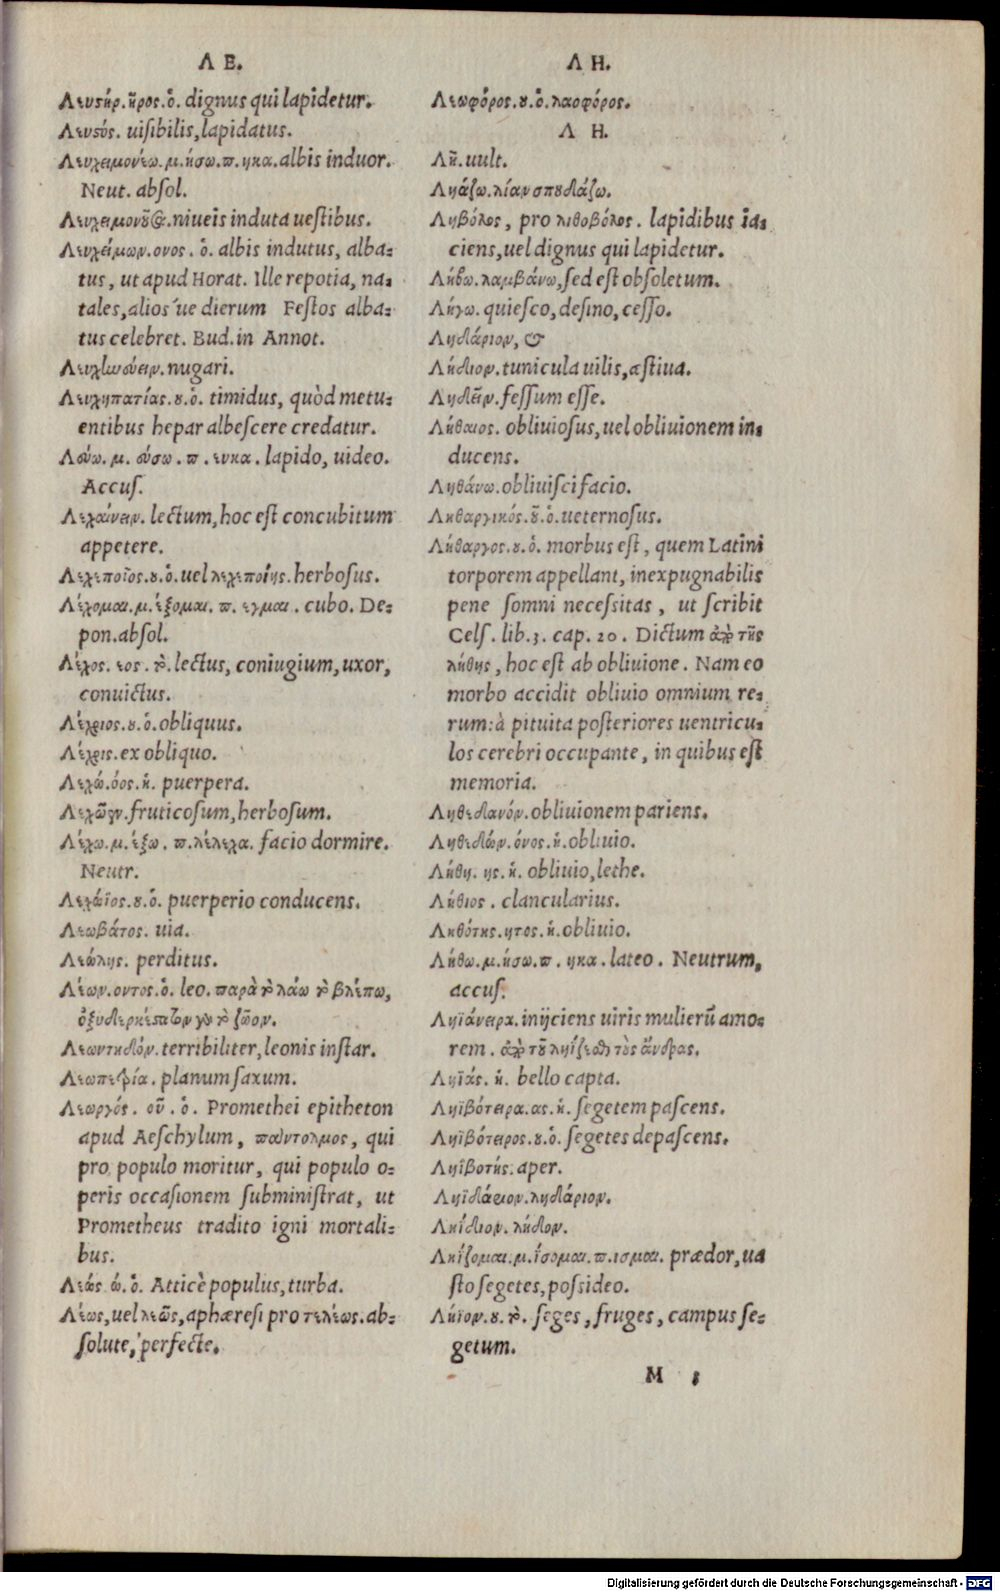 Λ Ε.
Λευστήρ.ῆρος.ὁ. dignus qui lapidetur.
Λευστός. uisibilis, lapidatus.
Λευχειμονέω.μ.ήσω.π.ηκα. albis induor.
Neut. absol.
Λευχειμονοῦσαι. niueis induta uestibus.
Λευχείμων.ονος.ὁ. albis indutus, alba-
tus, ut apud Horat. Ille repotia, na-
tales, alios'ue dierum Festos alba-
tus celebret. Bud. in Annot.
nugari.
Λευχηπατίας.ου.ὁ. timidus, quòd metu-
entibus hepar albescere credatur.
Λεύω.μ.εύσω.π.ευκα. lapido, uideo.
Accus.
Λεχαίνειν. lectum, hoc est concubitum
appetere.
Λεχεποῖος.ου.ὁ. uel λεχεποίης. herbosus.
Λέχομαι.μ.έξομαι.π.εγμαι. cubo. De-
pon. absol.
Λέχος.εος.τὸ. lectus, coniugium, uxor,
conuictus.
Λέχριος.ου.ὁ. obliquus.
Λέχρις. ex obliquo.
Λεχώ.όος.ἡ. puerpera.
fruticosum, herbosum.
Λέχω.μ.έξω.π.λέλεχα. facio dormire.
Neutr.
Λεχώϊος.ου.ὁ. puerperio conducens.
Λεωβάτος. uia.
Λεώλης. perditus.
Λέων.οντος.ὁ. leo. παρὰ τὸ λάω τὸ βλέπω,
ὀξυδερκέστατον γὰρ τὸ ζῶον.
Λεωντηδόν. terribiliter, leonis instar.
Λεωπετρία. planum saxum.
Λεωργός.οῦ.ὁ. Promethei epitheton
apud Aeschylum, παντολμος, qui
pro populo moritur, qui populo o-
peris occasionem subministrat, ut
Prometheus tradito igni mortali-
bus.
Λεώς ώ.ὁ. Atticè populus, turba.
Λέως, uel λεῶς, aphæresi pro τελέως. ab-
solute, perfecte.
Λ Η.
Λεωφόρος.ου.ὁ. λαοφόρος.
Λ Η.
Λῆ. uult.
Ληάζω. λίαν σπουδάζω.
Ληβόλος, pro λιθοβόλος. lapidibus ia-
ciens, uel dignus qui lapidetur.
Λήβω. λαμβάνω, sed est obsoletum.
Λήγω. quiesco, desino, cesso.
Ληδάριον, &
Λήδιον. tunicula uilis, æstiua.
Ληδεῖν. fessum esse.
Λήθαιος. obliuiosus, uel obliuionem in-
ducens.
Ληθάνω. obliuisci facio.
Ληθαργικός.οῦ.ὁ. ueternosus.
Λήθαργος.ου.ὁ. morbus est, quem Latini
torporem appellant, inexpugnabilis
pene somni necessitas, ut scribit
Cels. lib. 3. cap. 20. Dictum ἀπὸ τῆς
λήθης, hoc est ab obliuione. Nam eo
morbo accidit obliuio omnium re-
rum: à pituita posteriores uentricu-
los cerebri occupante, in quibus est
memoria.
Ληθεδανόν. obliuionem pariens.
Ληθεδών.όνος.ἡ. obliuio.
Λήθη.ης.ἡ. obliuio, lethe.
Λήθιος. clancularius.
Ληθότης.ητος.ἡ. obliuio.
Λήθω.μ.ήσω.π.ηκα. lateo. Neutrum,
accus.
Ληϊάνειρα. inijciens uiris mulierū amo-
rem. ἀπὸ τοῦ ληίζεσθαι τοὺς ἄνδρας.
Ληϊάς.ἡ. bello capta.
Ληϊβότειρα.ας.ἡ. segetem pascens.
Ληϊβότειρος.ου.ὁ. segetes depascens.
Ληϊβοτής. aper.
Ληϊδάριον. ληδάριον.
Ληίδιον. λήδιον.
Ληίζομαι.μ.ίσομαι.π.ισμαι. prædor, ua
sto segetes, possideo.
Λήϊον.ου.τὸ. seges, fruges, campus se-
getum.
M
Digitalisierung gefördert durch die Deutsche Forschungsgemeinschaft - DFG